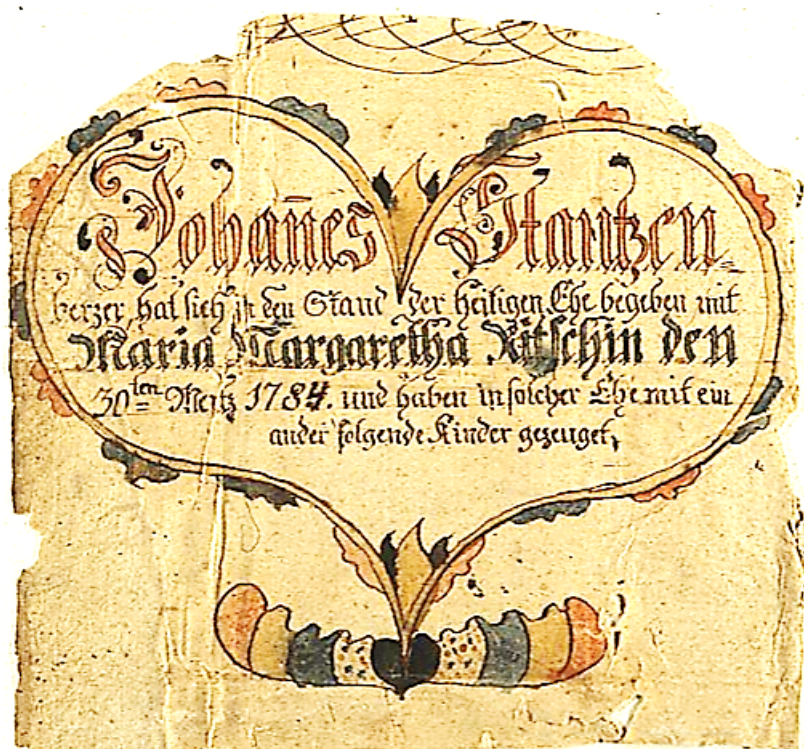 Johan̄es Stantzen
berger, hat sich in den Stand der heiligen Ehe begeben mit
Maria Margaretha Rätschin den
30ten Mertz 1784. und haben in solcher Ehe mit ein
ander folgende Kinder gezeuget,